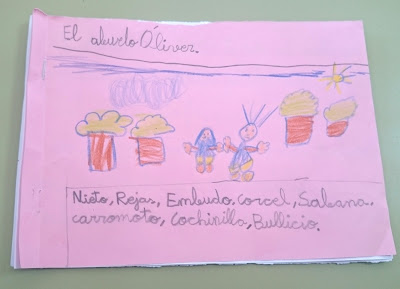 El abuelo Óliver.
Nieto, Rejas, Embudo, Corcel, Sabana.
carromoto, Cochinilla, Bullicio.